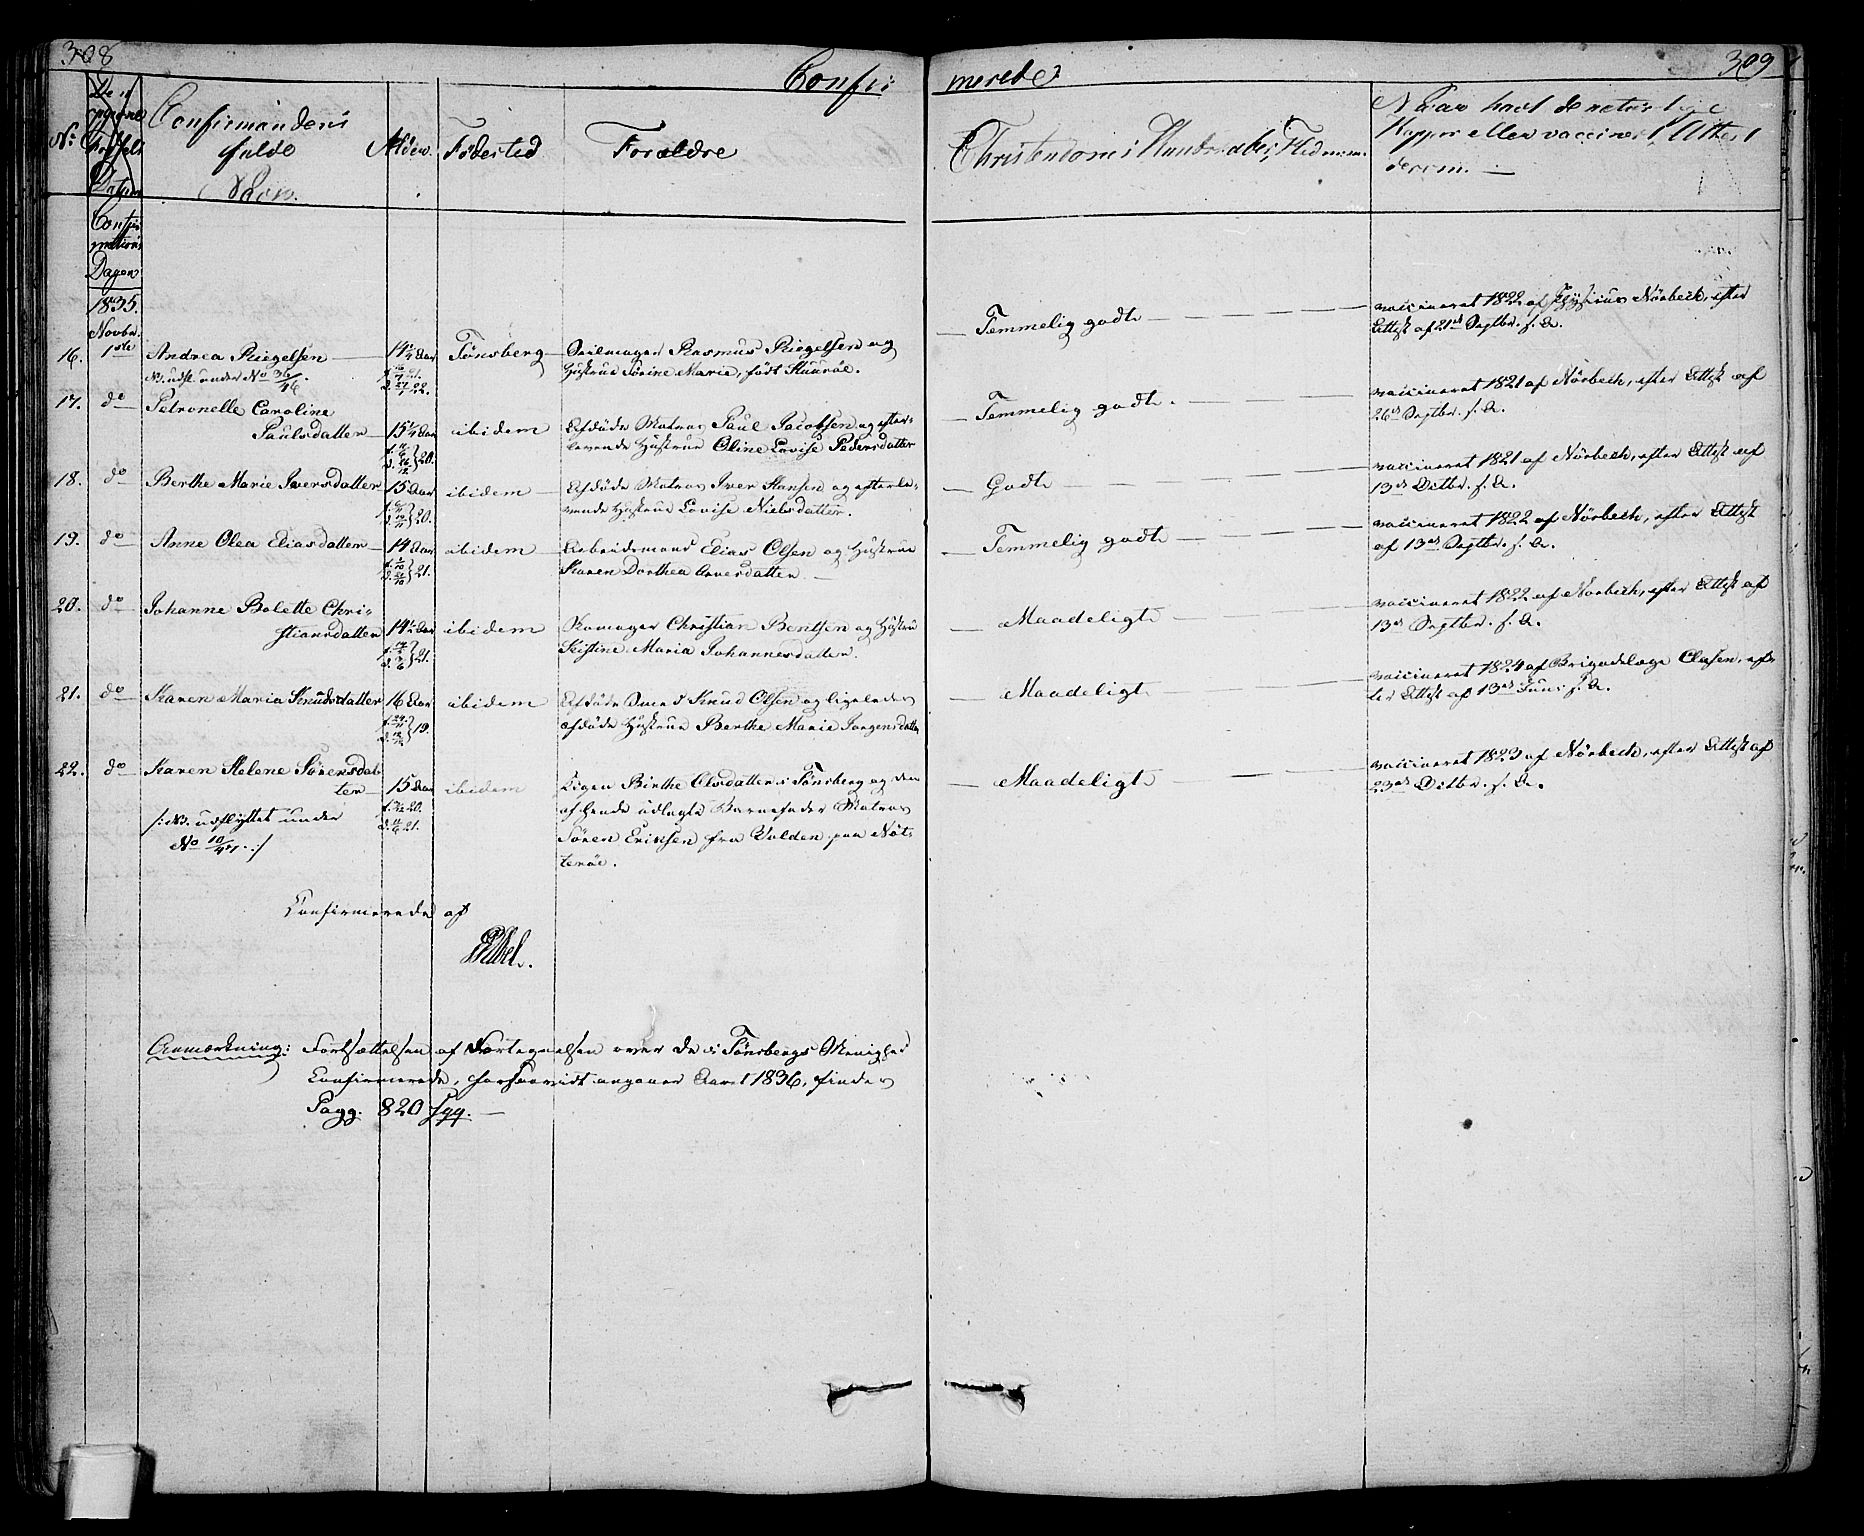 308
309
Confir:
merede.
No
Confirmandens
fulde
Navn.
Alder.
Födested
Forældre
Christendoms Kundskab,
Naar havt de naturlige
Kopper eller vaccineret, Attest
derom. —
Confir
mations
Dagen
1835.
Novbr.
16. 1ste Andrea Riegelsen — 14 1/4 Aar Tönsberg — Seilmager Rasmus Riegelsen og
NB. udfl. under No 36/46.
Hustrue Sörine Marie, födt Kuuröe.
— Temmelig godt — — — —
vaccineret 1822 af Physicus Nörbech, efter
Attest af 21de Septbr. s. A.
17. do Petronelle Caroline
Paulsdatter — 15 1/4 Aar ibidem — Afdöde Matros Paul Jacobsen og efter-
levende Hustrue Oline Lovise Pedersdatter
— Temmelig godt. — — — —
vaccineret 1821 af Nörbech, efter Attest af
26de Septbr. s. A.
18. do Berthe Marie Iversdatter 15 Aar ibidem — Afdöde Matros Iver Hansen og efterle-
vende Hustrue Lovise Nielsdatter.
— Godt — — — —
vaccineret 1821 af Nörbech, efter Attest af
13de Octbr. s. A.
19. do Anne Olea Eliasdatter — 14 Aar ibidem — Arbeidsmand Elias Olsen og Hustrue
Karen Dorthea Arnesdatter —
— Temmelig godt — — — —
vaccineret 1822 af Nörbech, efter Attest
af 13de Septbr. s. A.
20. do Johanne Bolette Chri-
stiansdatter 14 1/2 Aar ibidem — Christian Bentsen og Hustrue
Kistine Maria Johannesdatter.
— Maadeligt — — — —
vaccineret 1822 af Nörbech, efter Attest af
13de Septbr. s. A.
21. do Karen Maria Knudsdatter 16 Aar ibidem — Afdöde Smed Knud Olsen og ligeledes
afdöde Hustrue Berthe Marie Jorgensdatter
— Maadeligt — — — —
vaccineret 1824 af Brigadelæge Clasen, ef-
ter Attest af 13de Juni s. A.
22. do Karen Helene Sörensdat-
ter — 15 Aar ibidem — Pigen Birthe Olsdatter i Tönsberg og den
/: NB. udflyttet under
af hende udlagte Barnefader Matros
No 10/41. :/
Sören Eriksen fra Volden paa Nöt-
teröe.
— Maadeligt — — — —
vaccineret 1823 af Nörbech, efter Attest af
23de Octbr. s. A.
Confirmerede af
Anmærkning: Fortsættelsen af Fortegnelsen over de i Tönsbergs Menighed
Confirmerede, forsaavidt angaaer Aaret 1836, findes
Pagg. 820 sqq. —